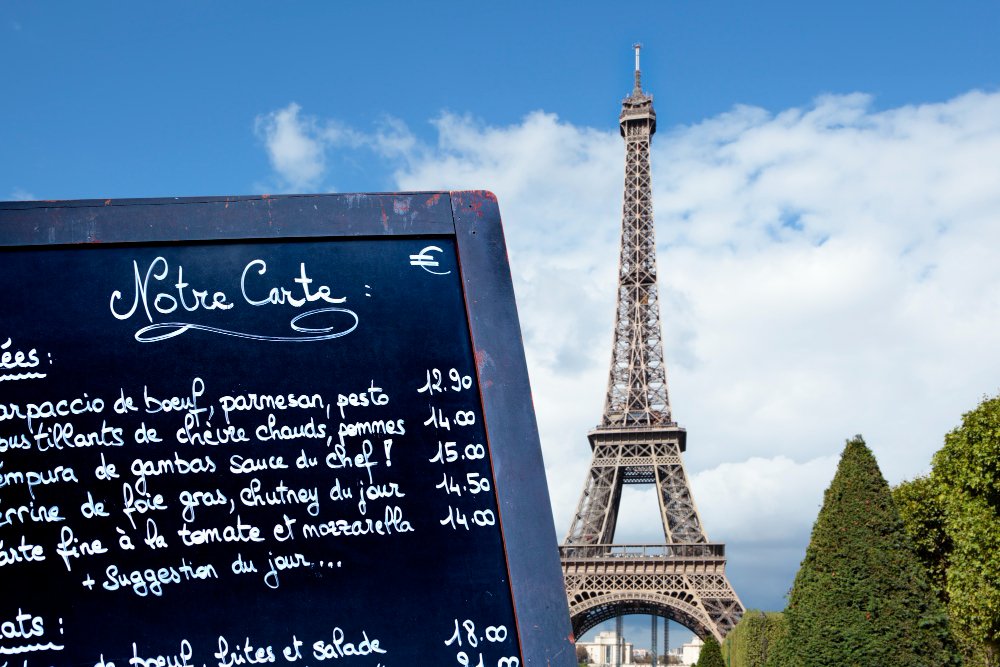 Notre Carte :
€
ées :
arpaccio de bœuf, parmesan, pesto 12.90
oustillants de chèvre chauds, pommes 14.00
empura de gambas sauce du chef ! 15.00
errine de foie gras, chutney du jour 14.50
arte fine à la tomate et mozzarella 14.00
+ Suggestion du jour...
ats :
de bœuf, frites et salade 18.00